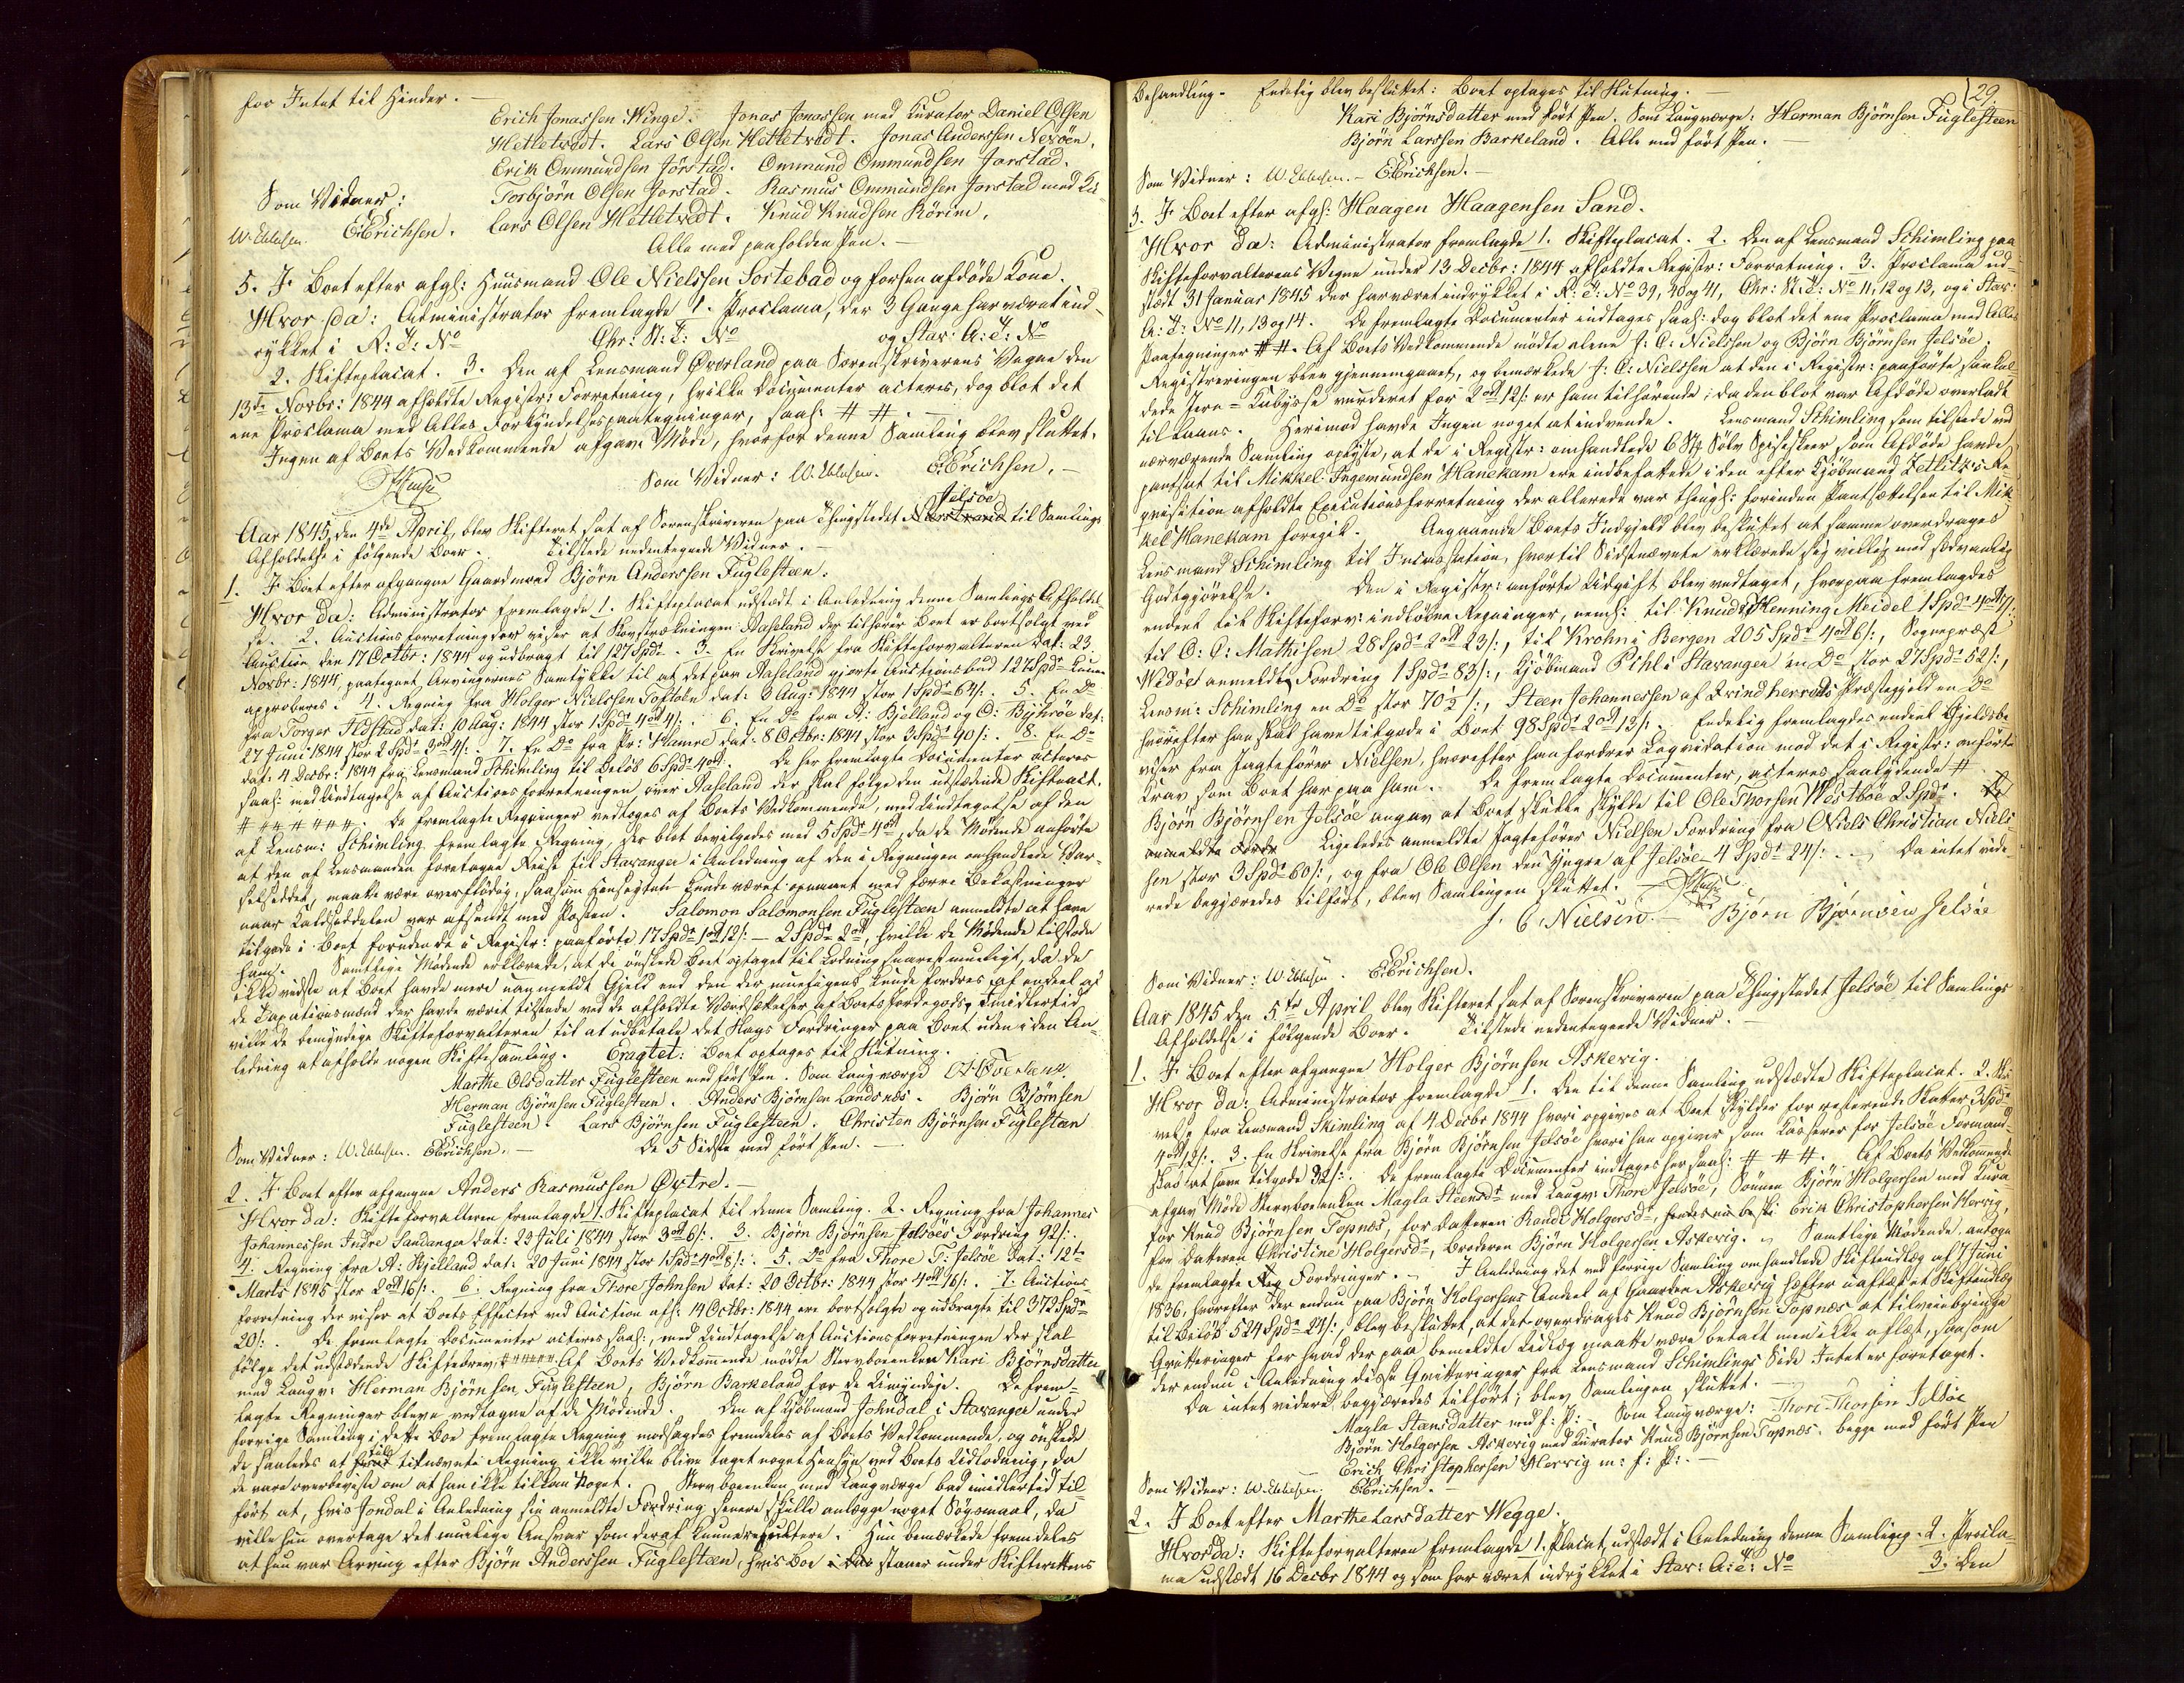 for Intet til Hinder. —
Erich Jonassen Winge. Jonas Jonassen med Kurator Daniel Olsen
Hetletvedt. Lars Olsen Hetletvedt. Jonas Anderssen Nexöen.
Erik Ommundsen Jörstad. Ommund Ommundsen Jorstad.
Torbjörn Olsen Jorstad. Rasmus Ommundsen Jorstad med Ku
Som Vidner: Lars Olsen Hetletvedt. Knud Knudsen Rörim.
W. Ebbesen. E. Erichsen. Alle med paaholden Pen. —
5. I Boet efter afgl: Huusmand Ole Nielssen Sortebad og forhen afdöde Kone.
Hvor da: Administrator fremlagde 1. Proclama, der 3 Gange har været ind-
rykket i R: T: No Chr: St: T: No og Stav: A: T: No
2. Skifteplacat. 3. Den af Lensmand Øverland paa Sorenskriverens Vegne den
13de Novbr: 1844 afholdte Registr: Forretning, hvilke Documenter acteres, dog blot det
ene Proclama med Alles Forkyndelsespaategninger, saal: # #. —
Ingen af Boets Vedkommende afgave Möde, hvorfor denne Samling blev sluttet.
Som Vidner: W. Ebbesen. E. Erichsen. —
Jelsöe
Aar 1845, den 4de April, blev Skifteret sat af Sorenskriveren paa Thingstedet Nærstrand til Samlings
Afholdelse i følgende Boer. Tilstede nedentegnede Vidner. —
1. I Boet efter afgangne Gaardmand Björn Anderssen Fuglesteen.
Hvor da: Administrator fremlagde 1. Skifteplacat udstædt i Anledning denne Samlings Afholdel
se. 2. Auctionsforretning der viser at Skovstrækningen Aaseland der tilhörer Boet er bortsolgt ved
Auction den 17 Octbr: 1844 og udbragt til 127 Spdr. 3. En Skrivelse fra Skifteforvalteren dat: 23
Novbr: 1844, paategnet Arvingernes Samtykke til at det paa Aaseland gjorte Auctionsbud 127 Spdr kunne
approberes. 4. Regning fra Holger Nielssen Toftöen dat: 3 Aug: 1844 stor 1 Spdr 64/:. 5. En Do
fra Torger Ilsstad dat: 10 Aug: 1844 stor 1 Spdr 4 ort 4/:. 6. En Do fra A: Bjelland og O: Byhröe dat:
27 Juni 1844 stor 2 Spdr 3 ort 4/:. 7. En Do fra Pr: Hemre dat: 8 Octbr: 1844 stor 3 Spdr 40/:. 8. En Do
dat: 4 Decbr: 1844 fra Lensmand Schimling til Belöb 6 Spdr 4 ort. De her fremlagte Documenter acteres
saal: med Undtagelse af Auctionsforretningen over Aaseland der skal følge den udstædende Skifteact.
# # # # # #. De fremlagte Regninger vedtoges af Boets Vedkommende, med Undtagelse af den
af Lensm: Schimling fremlagte Regning, der blot bevilgedes med 5 Spdr 4 ort, da de Mödende anförte
at den af Lensmanden foretagne Reise til Stavanger i Anledning af den i Regningen omhandlede Var-
selseddel, maatte være overflödig, saasom Hensigten kunde været opnaaet med færre Bekostninger
naar Kaldseddelen var afsendt med Posten. Salomon Salomonsen Fuglesteen anmeldte at have
tilgode i Boet foruden de i Registr: paaförte 17 Spdr 1 ort 12/: — 2 Spdr 2 ort, hvilke de Mödende tilstode
ham. Samtlige Mödende erklærede, at de önskede Boet optaget til Lodning snarest mueligt, da de
ikke vidste at Boet havde mere uanmeldt Gjeld end den der mueligens kunde fordres af endeel af
de Taxationsmænd der havde været tilstede ved de afholdte Værdsættelser af Boets Jordegods. Imidlertid
ville de bemyndige Skifteforvalteren til at udbetale det Slags Fordringer paa Boet uden i den An-
ledning at afholde nogen Skiftesamling. Eragtet: Boet optages til Slutning.
Marthe Olsdatter Fuglesteen med fört Pen. Som Laugværge
Herman Björnsen Fuglesteen. Anders Björnsen Landsnæs. Björn Björnsen
Fuglesteen. Lars Björnsen Fuglesteen. Christen Björnsen Fuglesteen
Som Vidner: W. Ebbesen. E. Erichsen. — De 5 Sidste med fört Pen. —
2. I Boet efter afgangne Anders Rasmussen Østre. —
Hvor da: Skifteforvalteren fremlagde 1. Skifteplacat til denne Samling. 2. Regning fra Johannes
Johannessen Indre Sandanger dat: 23 Juli 1844 stor 3 ort 6/:. 3. Björn Björnsen Jelsöes Fordring 92/:.
4. Regning fra A: Kjelland dat: 20 Juni 1844 stor 1 Spdr 4 ort 8/:. 5. Do fra Thore T: Jelsöe dat: 12te
Marts 1845 stor 2 ort 16/:. 6. Regning fra Thore Johnsen dat: 20 Octbr: 1844 stor 4 ort 16/:. 7. Auctions-
forretning der viser at Boets Effecter ved Auction afh: 14 Octbr: 1844 ere bortsolgte og udbragte til 372 Spdr
20/:. De fremlagte Documenter acteres saal:, med Undtagelse af Auctionsforretningen der skal
følge det udstædende Skiftebrev: # # # # # #. Af Boets Vedkommende mödte Stervboeenken Kari Björnsdatter
med Laugv: Herman Björnsen Fuglesteen, Björn Barkeland for de Umyndige. De frem-
lagte Regninger bleve vedtagne af de Mödende. Den af Kjöbmand Johndal i Stavanger under
forrige Samling i dette Boe fremlagte Regning modsagdes fremdeles af Boets Vedkommende, og önskede
de saaledes at sidst tilnævnte Regning ikke vilde blive taget noget Hensyn ved Boets Udlodning, da
de vare overbeviiste om at han ikke tilkom Noget. Stervboeenken med Laugværge bad imidlertid til-
fört at, hvis Jondal i Anledning sin anmeldte Fordring senere skulle anlægge noget Sögsmaal, da
ville hun overtage det muelige Ansvar som deraf kunne resultere. Hun bemærkede fremdeles
at hun var Arving efter Björn Anderssen Fuglesteen, hvis Boe staaer under Skifterettens
29
Behandling. Endelig blev besluttet: Boet optages til Slutning. —
Kari Björnsdatter med fört Pen. Som Laugværge: Herman Björnsen Fuglesteen
Björn Larssen Barkeland. Alle med fört Pen. —
Som Vidner: W. Ebbesen. — E. Erichsen. —
3. I Boet efter afgl: Haagen Haagensen Sand.
Hvor da: Administrator fremlagde 1. Skifteplacat. 2. Den af Lensmand Schimling paa
Skifteforvalterens Vegne under 13 Decbr: 1844 afholdte Registr: Forretning. 3. Proclama ud-
stædt 31 Januar 1845 der har været indrykket i R: T: No 39, 40 og 41, Chr: St: T: No 11, 12 og 13, og i Stav:
A: T: No 11, 13 og 14. De fremlagte Documenter indtages saal: dog blot det ene Proclama med Alles
Paategninger # #. Af Boets Vedkommende mödte alene J: C: Nielssen og Björn Björnsen Jelsöe.
Registreringen blev gjennemgaaet, og bemærkede J: C: Nielssen at den i Registr: paaförte, saakal
dede Jern = Kabysse vurderet for 2 ort 12/: er ham tilhörende; da den blot var Afdöde overladt
til Laans. Herimod havde Ingen noget at indvende. Lensmand Schimling som tilstede ved
nærværende Samling oplyste, at de i Registr: omhandlede 6 Stk Sölv Spiseskeer som Afdöde havde
pantsat til Mikkel Ingemundsen Hanekam ere indbefattede i den efter Kjöbmand Zetlitz's Re
qvisition afholdte Executionsforretning der allerede var thingl: forinden Pantsættelsen til Mik
kel Hanekam foregik. Angaaende Boets Indgjeld blev besluttet at samme overdrages
Lensmand Schimling til Incassation, hvortil Sidstnævnte erklærede sig villig mod sædvanlig
Godtgjörelse. Den i Registr: anförte Udgift blev vedtaget, hvorpaa fremlagdes
endeel til Skifteforv: indlöbne Regninger, neml: til Knud & Henning Meidel 1 Spdr 4 ort 17/:
til O: G: Mathisen 28 Spdr 2 ort 23/:, til Krohn i Bergen 205 Spdr 4 ort 6/:, Sognepræst
Widöe anmeldte Fordring 1 Spdr 83/:, Kjöbmand Pihl i Stavanger en Do stor 27 Spdr 52/:,
Lensm: Schimling en Do stor 70 1/2/:, Steen Johannessen af Qvindherreds Præstegjeld en Do
hvorefter han skal have tilgode i Boet 98 Spdr 2 ort 13/:. Endelig fremlagdes endeel Gjeldsbe
viser fra Jagtefører Nielssen, hvorefter han fordrer Liqvidation mod det i Registr: anförte
Krav, som Boet har paa ham. De fremlagte Documenter, acteres saalydende #.
Björn Björnsen Jelsöe angav at Boet skulle skylde til Ole Thorsen Westböe 2 Spdr. De
anmeldte Fordr Ligeledes anmeldte Jagtefører Nielssen Fordring fra Niels Christian Niels-
sen stor 3 Spdr 60/:, og fra Ole Olsen den Yngre af Jelsöe 4 Spdr 24/:. — Da intet vide-
rede begjæredes tilfört, blev Samlingen sluttet. —
J. C. Nielsen. — Bjørn Bjørnsen Jelsøe
Som Vidner: W. Ebbesen. E. Erichsen.
Aar 1845 den 5te April blev Skifteret sat af Sorenskriveren paa Thingstedet Jelsöe til Samlings
Afholdelse i følgende Boer. Tilstede nedentegnede Vidner. —
1. I Boet efter afgangne Holger Björnsen Askevig.
Hvor da: Administrator fremlagde 1. Den til denne Samling udstædte Skifteplacat. 2. Skri
velse fra Lensmand Skimling af 4 Decbr 1844 hvori opgives at Boet skylder for resterende Skatter 3 Spdr
4 ort 12/:. 3. En Skrivelse fra Björn Björnsen Jelsöe hvori han opgiver som Casserer for Jelsöe Formand-
skab at have tilgode 32/:. De fremlagte Documenter indtages her saal: # # #. Af Boets Vedkommende
afgav Möde Stervboeenken Magla Steensdr med Laugv: Thore Jelsöe, Sönnen Björn Holgersen med Kura-
tor Knud Björnsen Topnæs, for Datteren Randi Holgersdr, Erik Christophersen Hervig,
for Datteren Christine Holgersdr, Broderen Björn Holgersen Askevig. — Samtlige Mödende antoge
de fremlagte Fordringer. — I Anledning det ved forrige Samling omhandlede Skifteudlæg af 7 Juni
1836, hvorefter der endnu paa Björn Holgersens Andeel af Gaarden Askevig hefter uaflæst et Skifteudlæg
til Belöb 524 Spdr 24/:, blev besluttet, at det overdrages Knud Björnsen Topnæs at tilveiebringe
Qvitteringer for hvad der paa bemeldte Udlæg maatte være betalt men ikke aflæst, saasom
der endnu i Anledning disse Qvitteringer fra Lensmand Schimlings Side Intet er foretaget.
Da intet videre begjæredes tilfört, blev Samlingen sluttet. —
Magla Steensdatter med f: P: —. Som Laugværge: Thore Thorsen Jelsöe
Björn Holgersen Askevig med Kurator Knud Björnsen Topnæs. begge med fört Pen
Erich Christophersen Hervig m: f: P:. —
Som Vidner: W. Ebbesen. E. Erichsen. —
2. I Boet efter Marthe Larsdatter Wegge.
Hvor da: Skifteforvalteren fremlagde 1. Placat, udstædt i Anledning denne Samling. 2. Procla-
ma udstædt 16 Decbr 1844 og som har været indrykket i Stav: A: T: No 3. Den